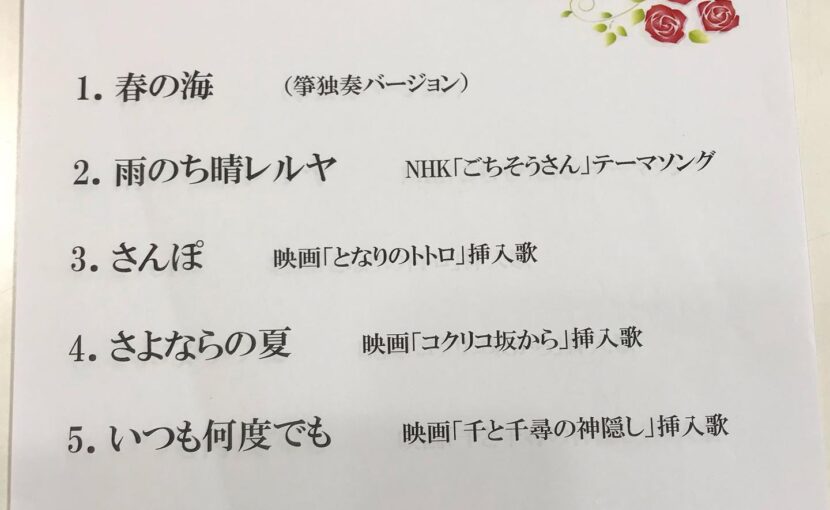 1. 春の海 （箏独奏バージョン）
2. 雨のち晴レルヤ NHK「ごちそうさん」テーマソング
3. さんぽ 映画「となりのトトロ」挿入歌
4. さよならの夏 映画「コクリコ坂から」挿入歌
5. いつも何度でも 映画「千と千尋の神隠し」挿入歌